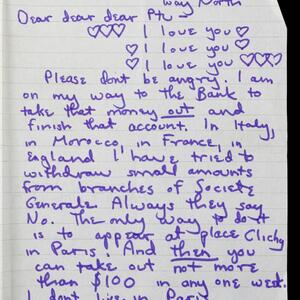 way North
Dear dear dear Pty
♡♡♡ I love you ♡
♡ I love you ♡
♡ I love you ♡♡♡
Please dont be angry. I am
on my way to the Bank to
take that money out and
finish that account. In Italy,
in Morocco, in France, in
England I have tried to
withdraw small amounts
from branches of Societe
Generale Always they say
No. The only way to do it
is to appear at place Clichy
in Paris. And then you
can take out not more
than $100 in any one week.
I dont live in Paris